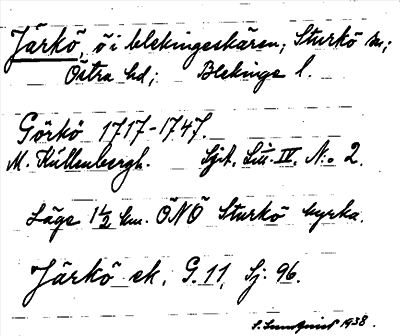 Järkö, ö i blekingeskären; Sturkö sn;
Östra hd; Blekinge l.
Görkö 1717-1747.
M. Kullenbergh. Sjk. Litt. IV. N:o 2.
Läge 1½ km. ÖNÖ Sturkö kyrka.
Järkö ek. G. 11, Sj. 96.
S. Lundqvist 1938.